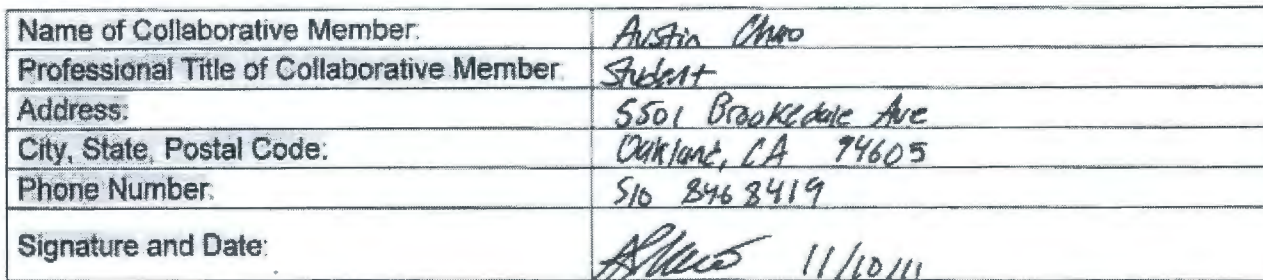 Name of Collaborative Member: Austin Chao
Professional Title of Collaborative Member: Student
Address: 5501 Brookedale Ave
City, State, Postal Code: Oakland, CA 94605
Phone Number: 510 846 8419
Signature and Date: 11/10/11